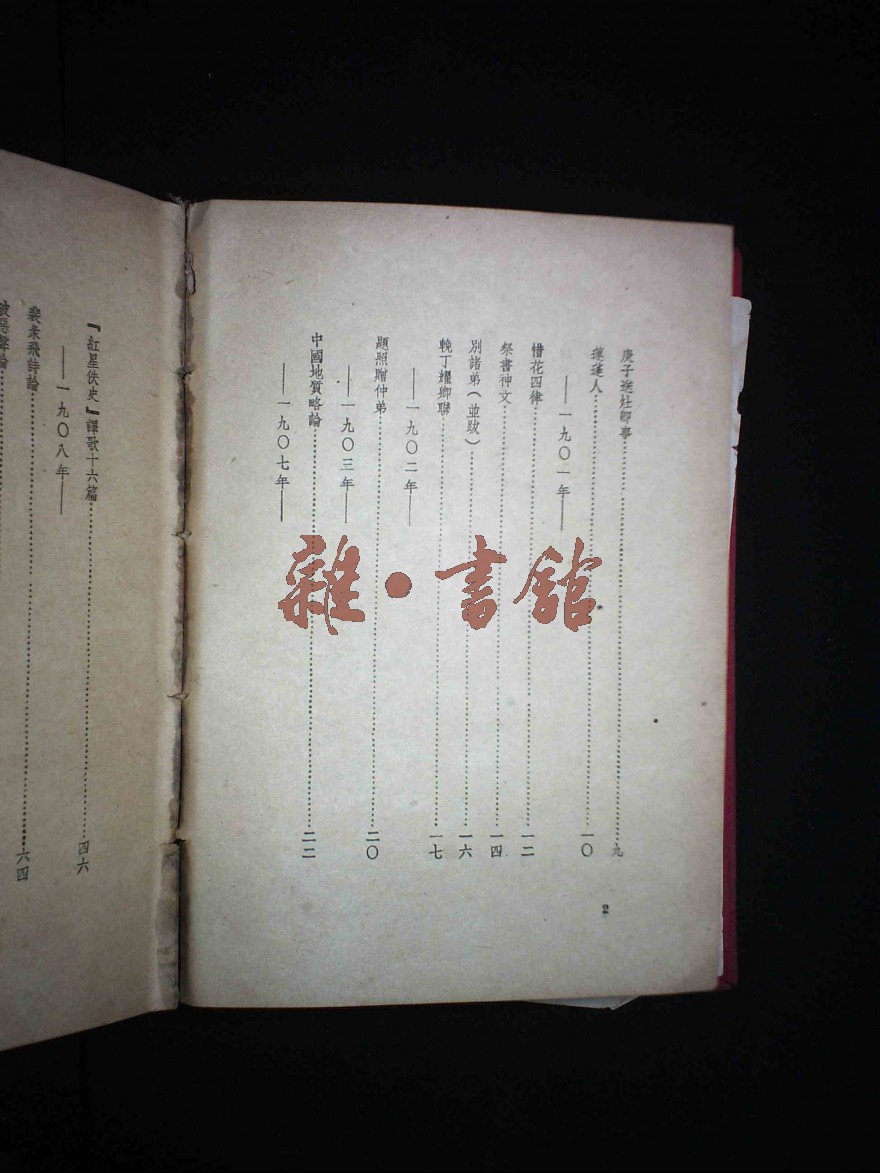 庚子送灶卽事………九
蓮蓬人………一〇
——一九〇一年——
惜花四律………一二
祭書神文………一四
別諸弟（並跋）………一六
輓丁耀卿聯………一七
——一九〇二年——
題照贈仲弟………二〇
——一九〇三年——
中國地質略論………二二
——一九〇七年——
2
『紅星佚史』譯歌十六篇………四六
——一九〇八年——
裴彖飛詩論………六四
破惡聲論
雜·書館